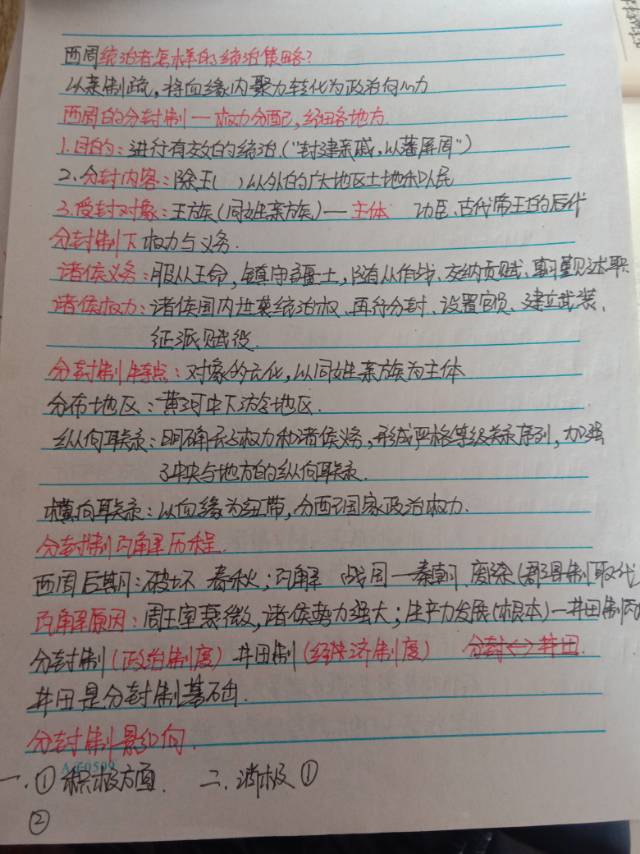 西周统治者怎样的统治策略?
以亲制疏,将血缘内聚力转化为政治向心力
西周的分封制一权力分配,给各地方
1.目的:进行有效的统治("封建亲戚,以藩屏周")
2.分封内容:除王( )以外的广大地区土地和人民
3.受封对象:王族(同姓亲族)—主体 功臣、古代帝王的后代
分封制下权力与义务.
诸侯义务:服从王命,镇守疆土,随从作战、交纳贡赋、朝觐述职
诸侯权力:诸侯国内世袭统治权、再行分封、设置官员、建立武装、
征派赋役.
分封制特点:对象多元化,以同姓亲族为主体
分布地区:黄河中下游地区.
纵向联系:明确示权力和诸侯义务,形成严格等级关系序列,加强
了中央与地方的纵向联系.
横向联系:以血缘为纽带,分配了国家政治权力.
分封制瓦解历程.
西周后期:破坏 春秋;瓦解 战国一秦朝 废除(郡县制取代
瓦解原因:周王室衰微,诸侯势力强大;生产力发展(根本)一井田制瓦
分封制(政治制度) 井田制(经济制度) 分封<->井田.
井田是分封制基石.
分封制影响.
一.①积极方面. 二.消极①
②